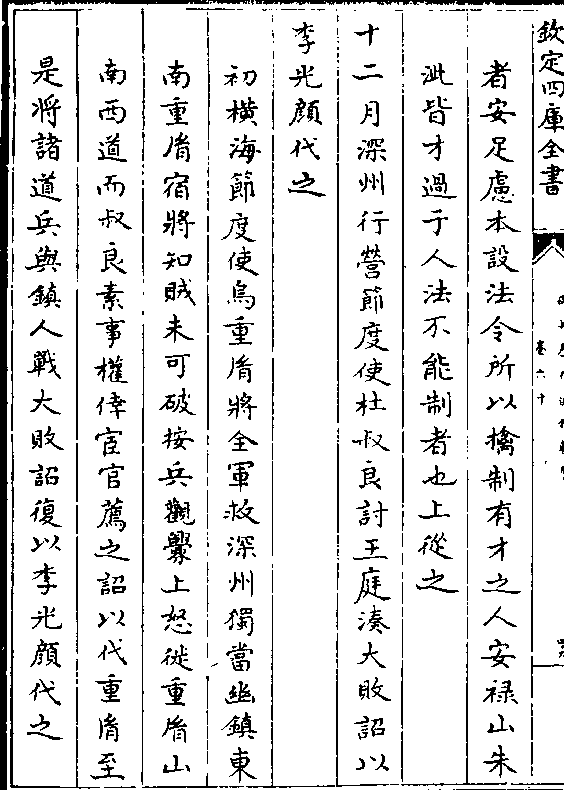 欽定四庫全書
卷六十
者安足慮本設法令所以擒制有才之人安祿山朱
泚皆才過于人法不能制者也上從之
十二月深州行營節度使杜叔良討王庭湊大敗詔以
李光顔代之
初橫海節度使烏重𦙍將全軍救深州獨當幽鎮東
南重𦙍宿將知賊未可破按兵觀釁上怒徙重𦙍山
南西道而叔良素事權倖宦官薦之詔以代重𦙍至
是將諸道兵與鎮人戰大敗詔復以李光顔代之